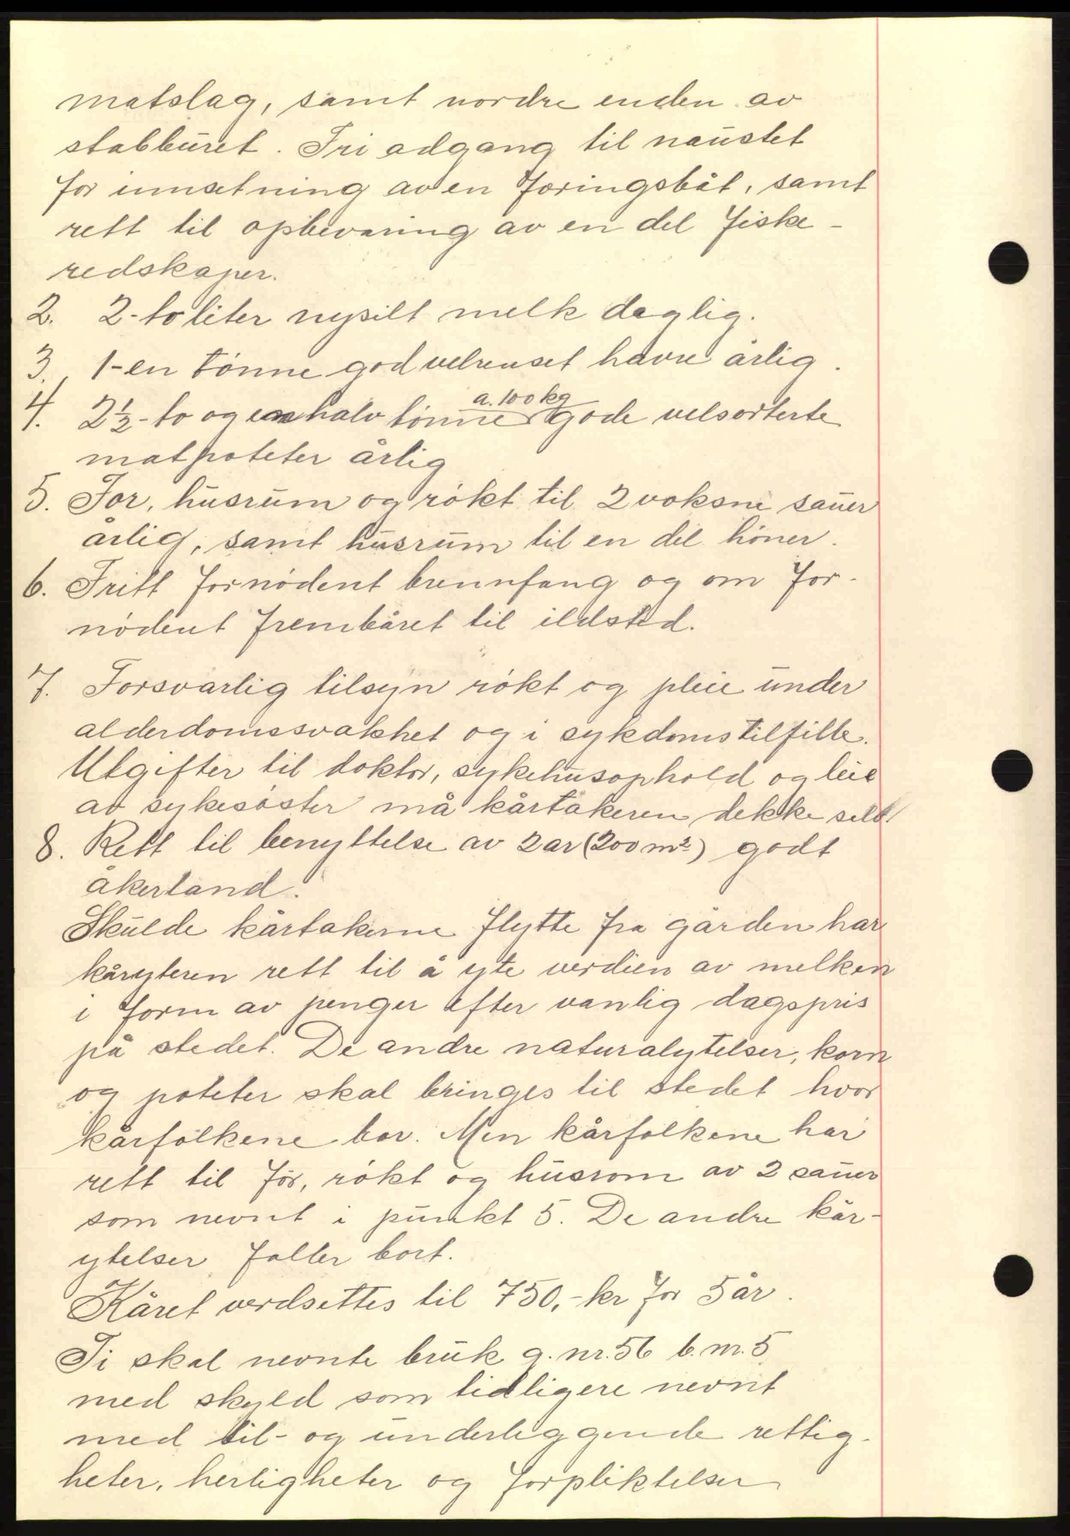 matslag, samt nordre enden av
stabburet. Fri adgang til naustet
for innsetning av en føringsbåt, samt
rett til opbevaring av en del fiske-
redskaper.
2. 2-to liter nysilt melk daglig.
3. 1-en tønne god velrenset havre årlig.
4. 2½-to og en halv tønne a. 100 kg gode velsorterte
matpoteter årlig
5. For, husrum og røkt til 2 voksne sauer
årlig, samt husrum til en del høner.
6. Fritt fornødent brennfang og om for-
nødent frembåret til ildsted.
7. Forsvarlig tilsyn røkt og pleie under
alderdomssvakhet og i sykdomstilfille.
Utgifter til doktor, sykehusophold og leie
av sykesøster må kårtakeren dekke selv.
8. Rett til benyttelse av 2 ar (200 m²) godt
åkerland.
Skulde kårtakerne flytte fra gården har
kåryteren rett til å yte verdien av melken
i form av penger efter vanlig dagspris
på stedet. De andre naturalytelser, korn
og poteter skal bringes til stedet hvor
kårfolkene bor. Men kårfolkene har
rett til fòr, røkt og husrom av 2 sauer
som nevnt i punkt 5. De andre kår-
ytelser faller bort.
Kåret verdsettes til 750,- kr for 5 år.
Ti skal nevnte bruk g.nr. 56 b.nr. 5
med skyld som tidligere nevnt
med til- og underliggende rettig-
heter, herligheter og forpliktelser